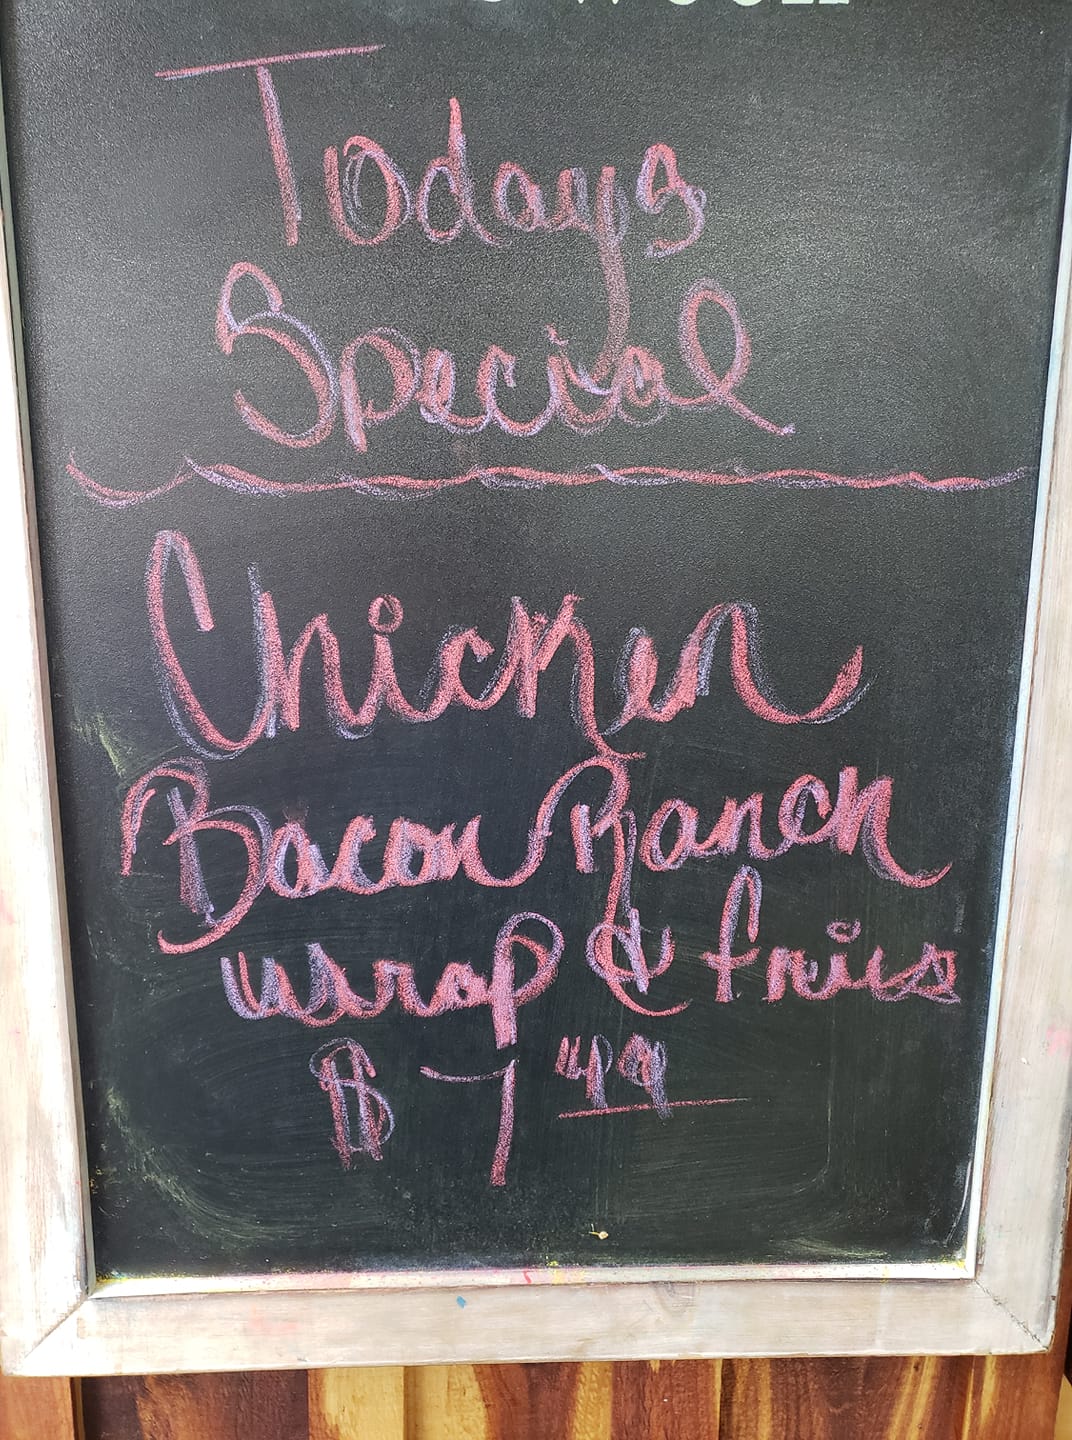 Todays
Special
Chicken
Bacon Ranch
wrap & fries
$ 7 49